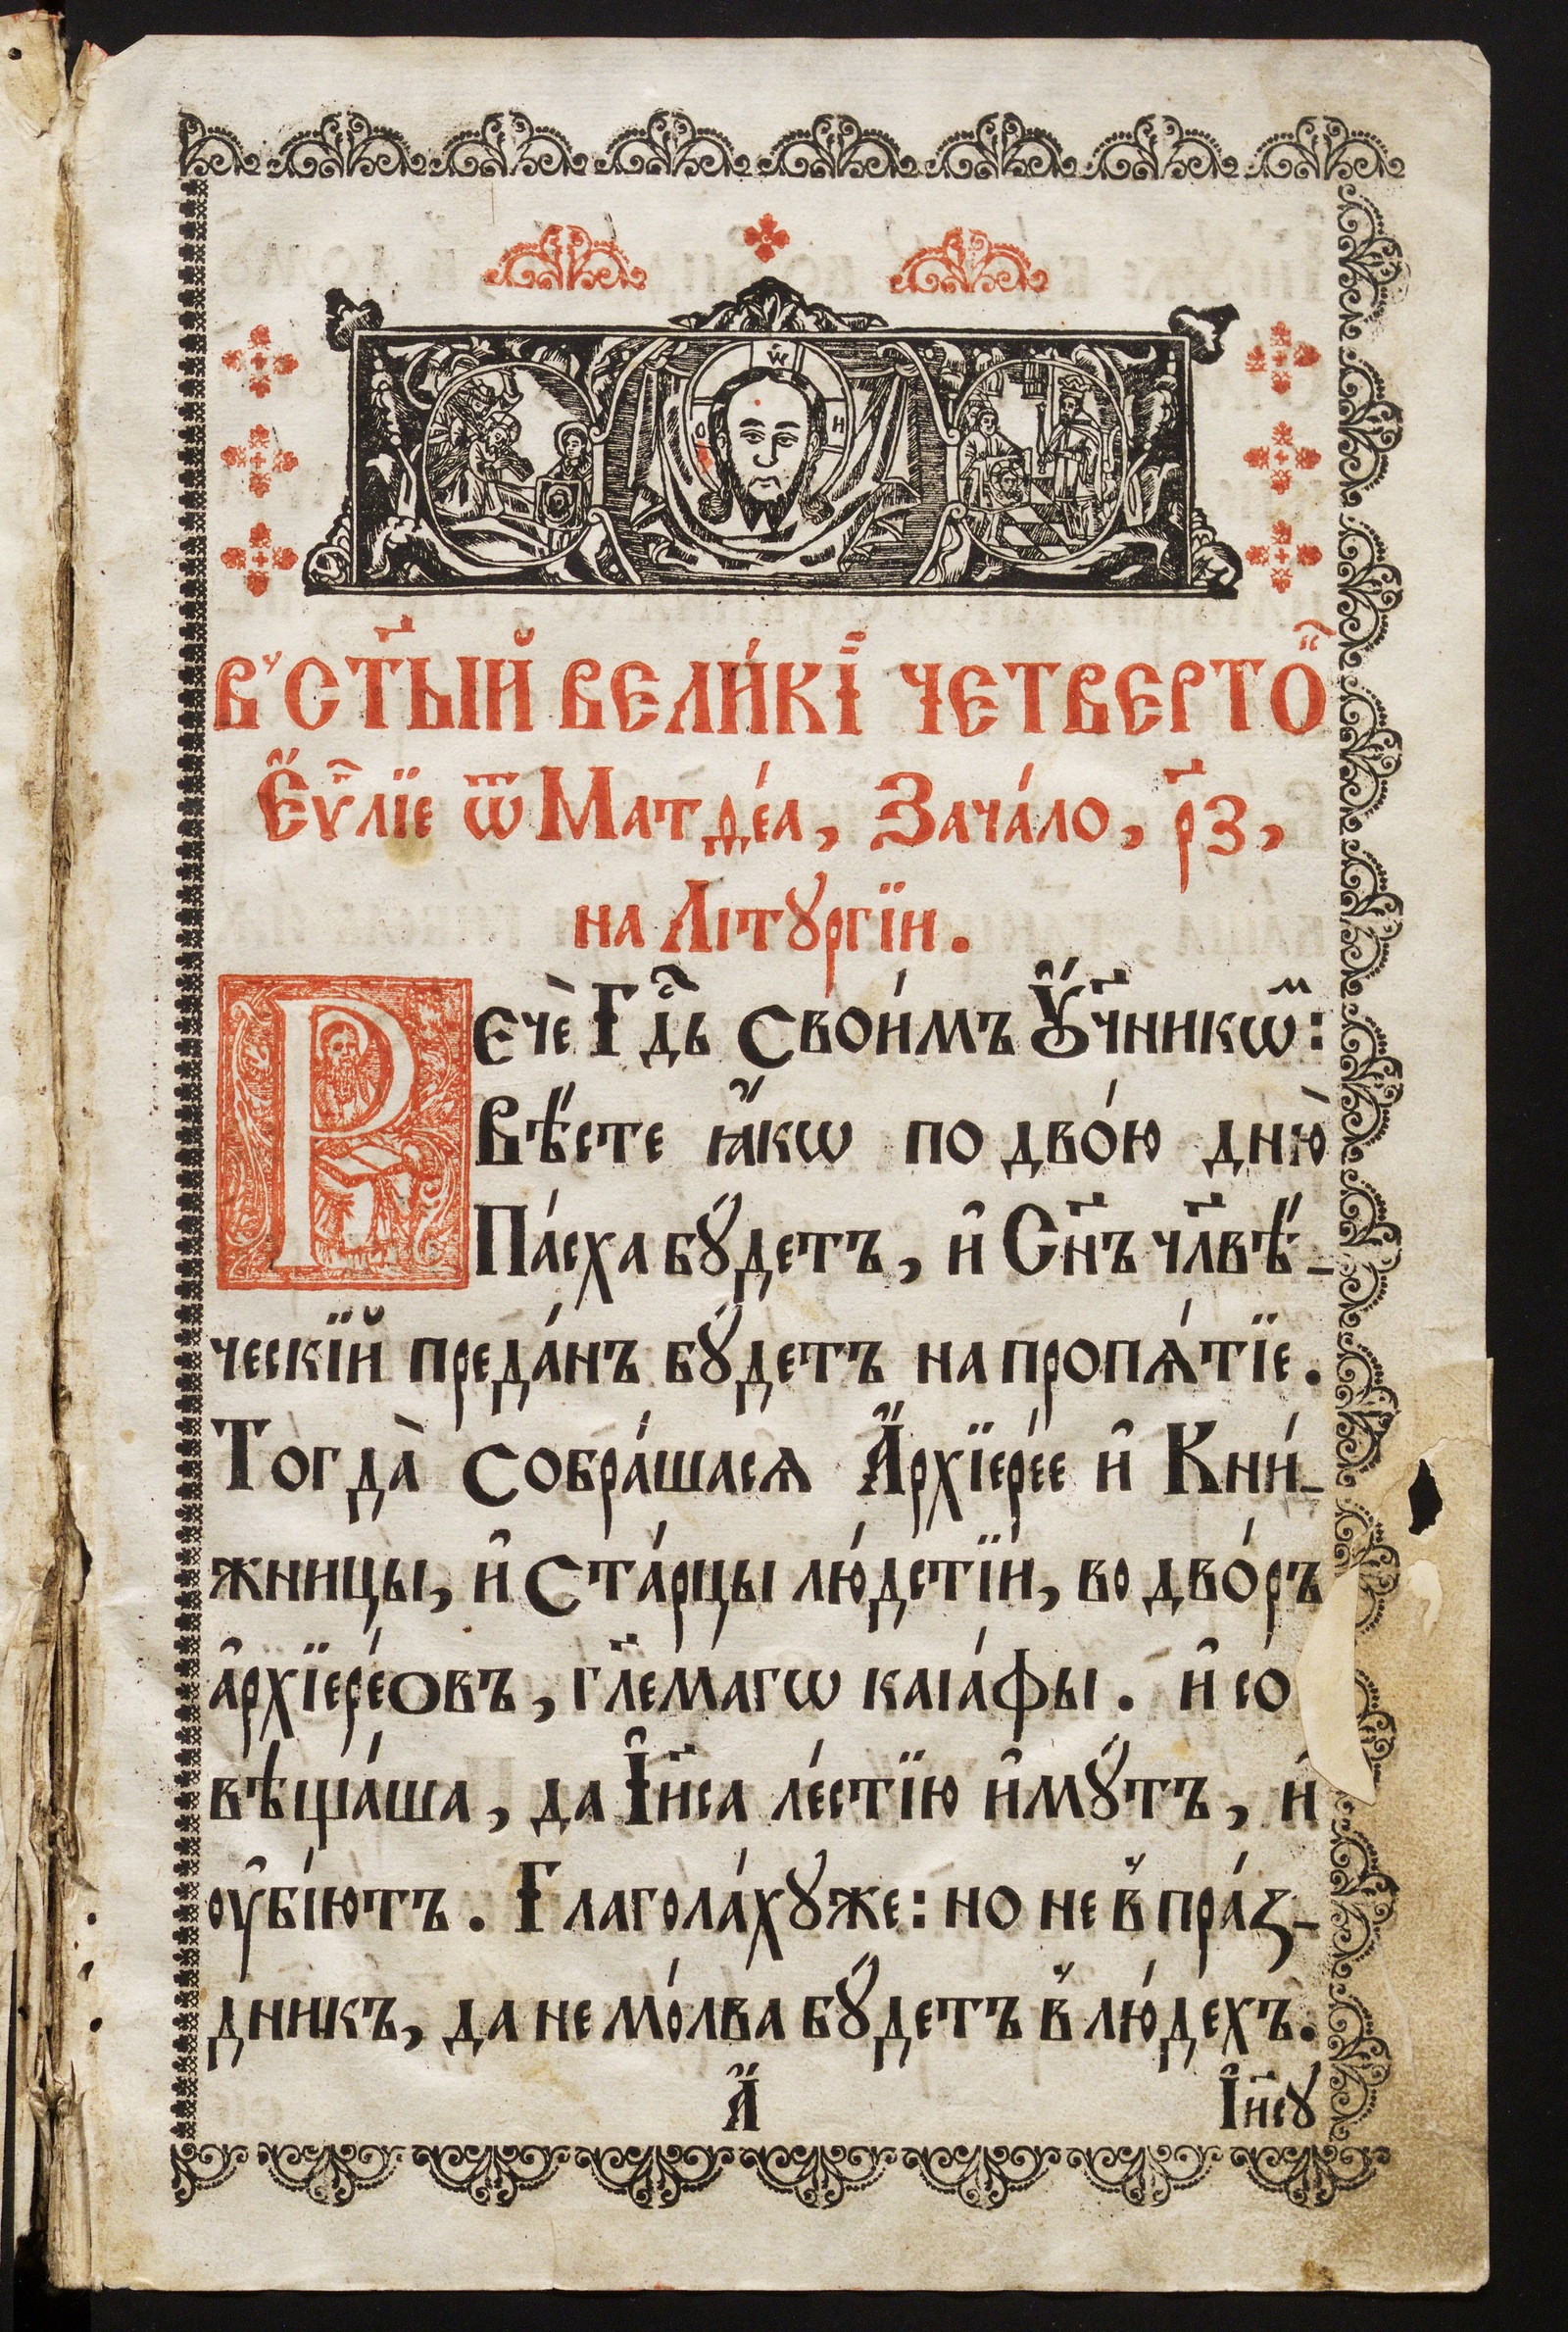 В̾ СТ҃ЫЙ ВЕЛИ́КІЙ ЧЕТВЕРТО҇К
Є҆Ѵ҃ЛІЕ ѿ Матѳе́а, Зача́ло, р҃з,
на Літꙋргі́и.
Речѐ Гдⷭ҇ь Свои́мъ Оу҆чн҃икѡⷨ:
Вѣ́сте ꙗ҆́кѡ по дво́ю дню̀
Па́сха бꙋ́детъ, и҆ Сн҃ъ чл҃вѣ́-
ческїй преда́нъ бꙋ́детъ на пропѧ́тїе.
Тогда̀ Собра́шасѧ А҆рхїере́е и҆ Кни́-
жницы, и҆ Ста́рцы лю́дстїи, во дво́ръ
а҆рхїере́овъ, гл҃емагѡ каїа́фы. и҆ со
вѣща́ша, да І҆и҃са ле́стїю и҆́мꙋтъ, и҆
оу҆бїю́тъ. Глагола́хꙋже: но не в̾ пра́з-
дникъ, да не мо́лва бꙋ́детъ в̾ лю́дехъ.
А҆
І҆и҃сꙋ